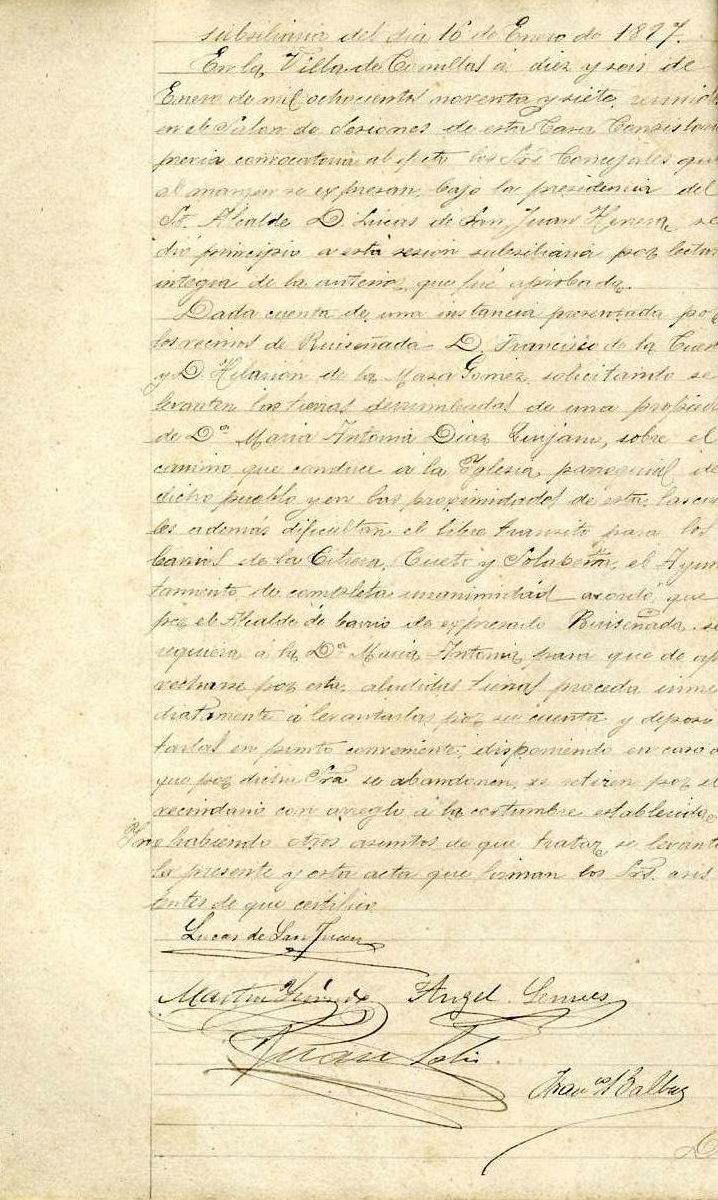 subsiliaria del dia 16 de Enero de 1897.
En la Villa de Comillas á diez y seis de
Enero de mil ochocientos noventa y siete, reunid
en el Salon de Sesiones de esta Casa Consistori
previa convocatoria al efecto los Srs. Concejales que
al margen se expresan, bajo la presidencia del
Sr. Alcalde D. Lucas de San Juan Herrera, se
dió principio a esta sesion subsiliaria por lectur
integra de la anterior que fué aprobada.
Dada cuenta de una instancia presentada por
los vecinos de Ruiseñada D. Francisco de la Cuest
y D. Hilarion de la Maza Gomez, solicitando se
levanten las tierras derrumbadas de una propied
de Dª Maria Antonia Diaz, sobre el
camino que conduce á la Yglesia parroquial de
dicho pueblo y en las proximidades de esta, las cua
les además dificultan el libre transito para los
barrios de la Citrera, Cueto y, el Ayun
tamiento de completa unanimidad acordó, que
por el Alcalde de barrio de expresado Ruiseñada, se
requiera á la Dª Maria Antonia para que de ap
vecharse por esta, aludidas tierras proceda inme
diatamente á levantarlas por su cuenta y deposi
tarlas en punto conveniente; disponiendo en caso d
que por dicha Sra se abandonen, se retiren por el
vecindario con arreglo á la costumbre establecida.
Y no habiendo otros asuntos de que tratar se levantó
la presente y esta acta que firman los Srs. asis
tentes de que certifico.
Lucas de San Juan
Martin Angel
Juan
Franco Balbas
D